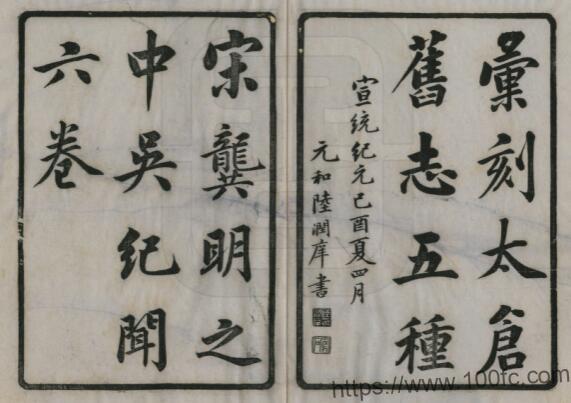 彙刻太倉
舊志五種
宣統紀元己酉夏四月
元和陸潤庠書
宋龔明之
中吳紀聞
六卷
https://www.100fc.com